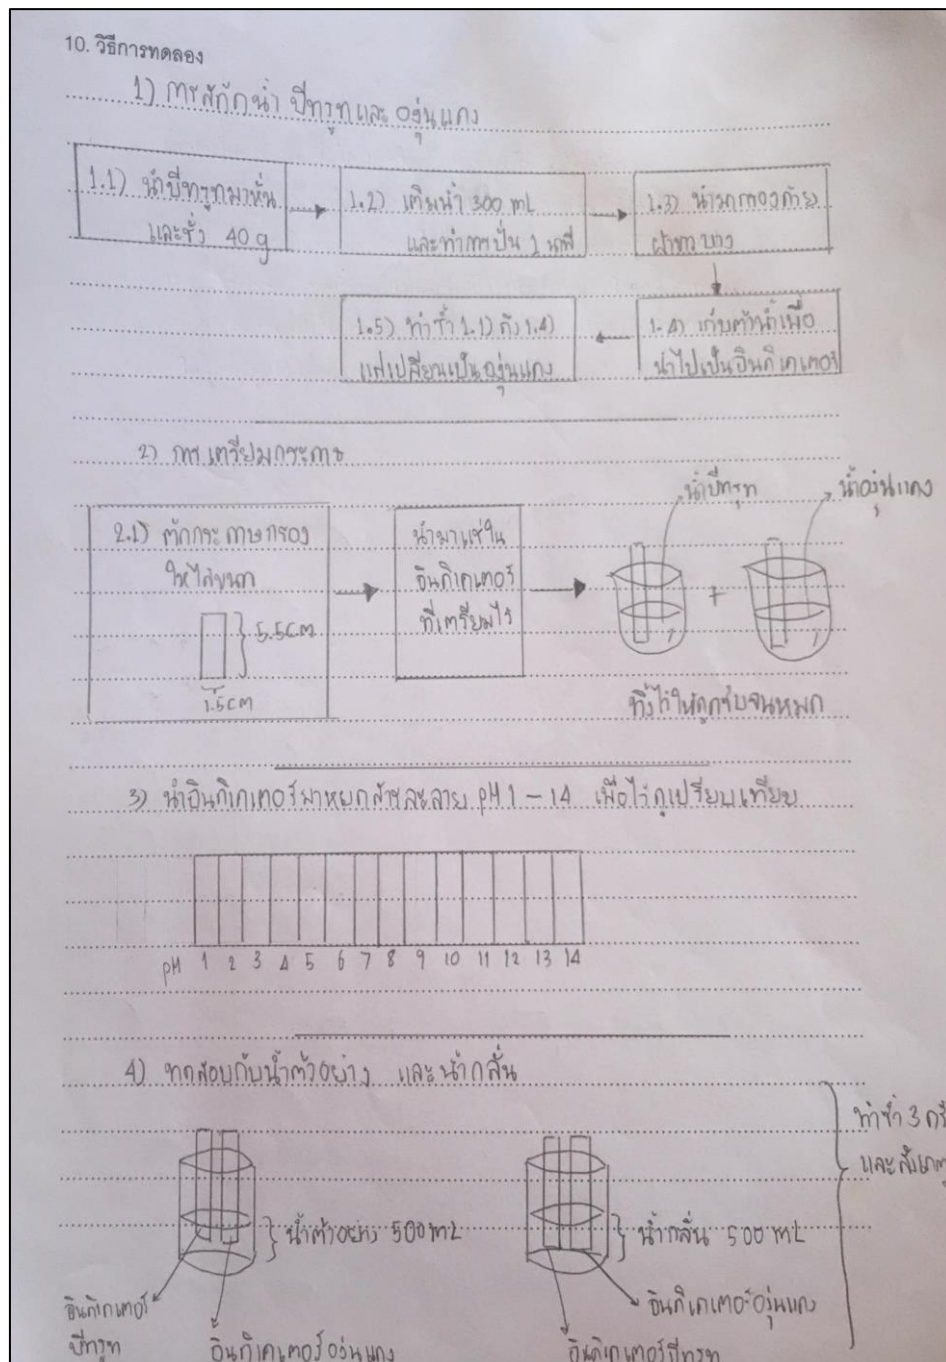 10. วิธีการทดลอง
1) การสกัดน้ำ บีทรูทและ องุ่นแดง
1.1) นำบีทรูทมาหั่น
และชั่ง 40 g
1.2) เติมน้ำ 300 mL
และทำการปั่น 1 นาที
1.3) นำมากรองด้วย
ผ้าขาวบาง
1.5) ทำซ้ำ 1.1) ถึง 1.4)
แต่เปลี่ยนเป็นองุ่นแดง
1.4) เก็บตัวน้ำเพื่อ
นำไปเป็นอินดิเคเตอร์
2) การเตรียมกระดาษ
น้ำบีทรูท
น้ำองุ่นแดง
2.1) ตัดกระดาษกรอง
ให้ได้ขนาด
5.5cm
1.5cm
นำมาแช่ใน
อินดิเคเตอร์
ที่เตรียมไว้
+
ทิ้งไว้ให้ดูดซับจนหมด
3) นำอินดิเคเตอร์มาหยดสารละลาย pH 1 - 14 เพื่อไว้ดูเปรียบเทียบ
pH 1 2 3 4 5 6 7 8 9 10 11 12 13 14
4) ทดสอบกับน้ำตัวอย่าง และน้ำกลั่น
ทำซ้ำ 3
และสังเกต
น้ำตัวอย่าง 500 mL
น้ำกลั่น 500 mL
อินดิเคเตอร์
บีทรูท
อินดิเคเตอร์องุ่นแดง
อินดิเคเตอร์องุ่นแดง
อินดิเคเตอร์บีทรูท